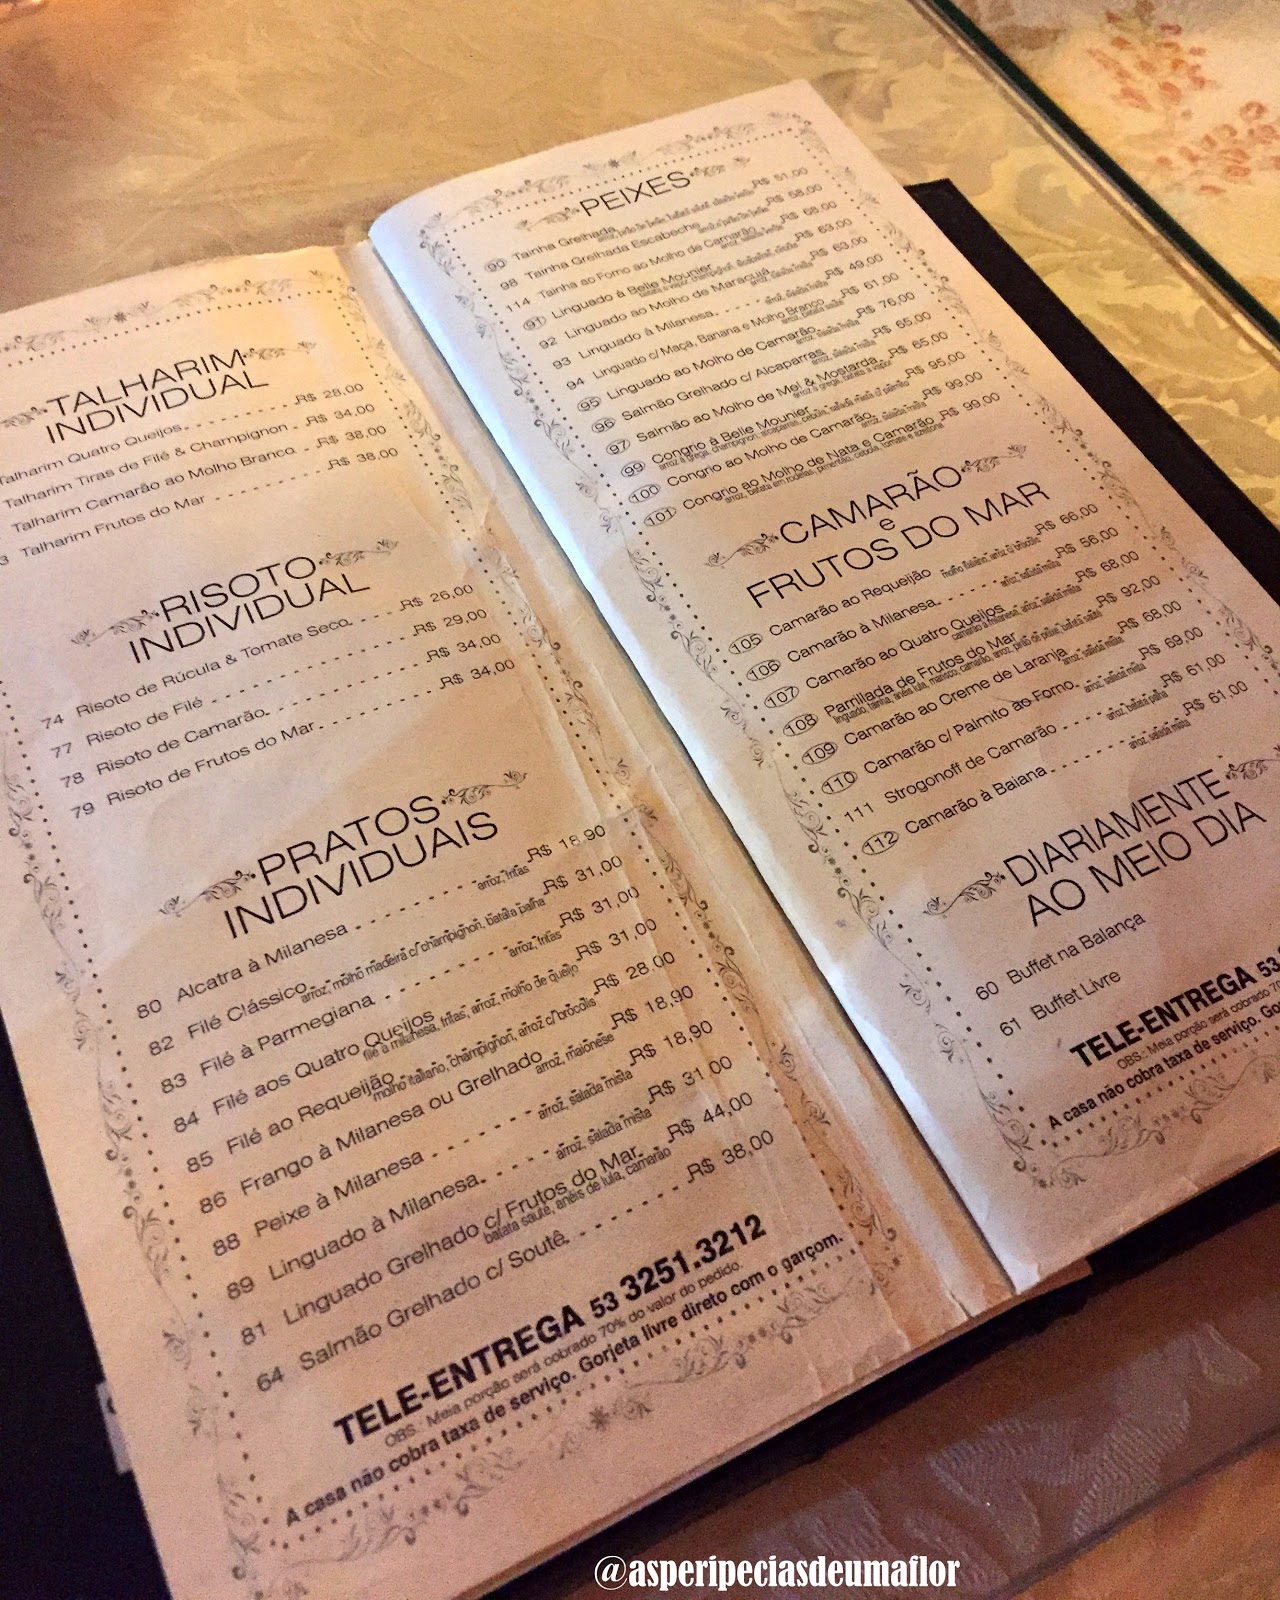 TALHARIM
INDIVIDUAL
Talharim Quatro Queijos R$ 28,00
Talharim Tiras de Filé & Champignon R$ 34,00
Talharim Camarão ao Molho Branco R$ 38,00
3 Talharim Frutos do Mar R$ 38,00
RISOTO
INDIVIDUAL
74 Risoto de Rúcula & Tomate Seco R$ 26,00
77 Risoto de Filé R$ 29,00
78 Risoto de Camarão R$ 34,00
79 Risoto de Frutos do Mar R$ 34,00
PRATOS
INDIVIDUAIS
80 Alcatra à Milanesa arroz, fritas R$ 18,90
82 Filé Clássico arroz, molho madeira c/ champignon, batata palha R$ 31,00
83 Filé à Parmegiana arroz, fritas R$ 31,00
84 Filé aos Quatro Queijos R$ 31,00
filé à milanesa, fritas, arroz, molho de queijo
85 Filé ao Requeijão R$ 28,00
molho italiano, champignon, arroz c/ brócolis
86 Frango à Milanesa ou Grelhado arroz, maionese R$ 18,90
88 Peixe à Milanesa arroz, salada mista R$ 18,90
89 Linguado à Milanesa arroz, salada mista R$ 31,00
81 Linguado Grelhado c/ Frutos do Mar R$ 44,00
batata sauté, anéis de lula, camarão
64 Salmão Grelhado c/ Soutê R$ 38,00
TELE-ENTREGA 53 3251.3212
OBS.: Meia porção será cobrado 70% do valor do pedido.
A casa não cobra taxa de serviço. Gorjeta livre direto com o garçom.
PEIXES
90 Tainha Grelhada R$ 51,00
98 Tainha Grelhada Escabeche R$ 58,00
114 Tainha ao Forno ao Molho de Camarão R$ 68,00
91 Linguado à Belle Mounier R$ 63,00
92 Linguado ao Molho de Maracujá arroz, salada mista R$ 63,00
93 Linguado à Milanesa arroz, salada mista R$ 49,00
94 Linguado c/ Maça, Banana e Molho Branco R$ 61,00
95 Linguado ao Molho de Camarão arroz, salada mista R$ 76,00
96 Salmão Grelhado c/ Alcaparras arroz, salada mista R$ 65,00
97 Salmão ao Molho de Mel & Mostarda R$ 65,00
arroz à grega, batata à vapor
99 Congrio à Belle Mounier R$ 95,00
100 Congrio ao Molho de Camarão arroz, salada mista R$ 99,00
101 Congrio ao Molho de Nata e Camarão R$ 99,00
arroz, batata em rodelas, pimentão, cebola, tomate e azeitona
CAMARÃO
e
FRUTOS DO MAR
105 Camarão ao Requeijão molho italiano, arroz c/ brócolis R$ 66,00
106 Camarão à Milanesa arroz, salada mista R$ 56,00
107 Camarão ao Quatro Queijos R$ 68,00
camarão à milanesa, arroz, salada mista
108 Parrillada de Frutos do Mar R$ 92,00
linguado, tainha, anéis lula, marisco, camarão, arroz, pirão de peixe, batata sauté
109 Camarão ao Creme de Laranja arroz, salada mista R$ 68,00
110 Camarão c/ Palmito ao Forno arroz, salada mista R$ 69,00
111 Strogonoff de Camarão arroz, batata palha R$ 61,00
112 Camarão à Baiana arroz, salada mista R$ 61,00
DIARIAMENTE
AO MEIO DIA
60 Buffet na Balança
61 Buffet Livre
TELE-ENTREGA 53
OBS.: Meia porção será cobrado 70
A casa não cobra taxa de serviço. Go
@asperipeciasdeumaflor